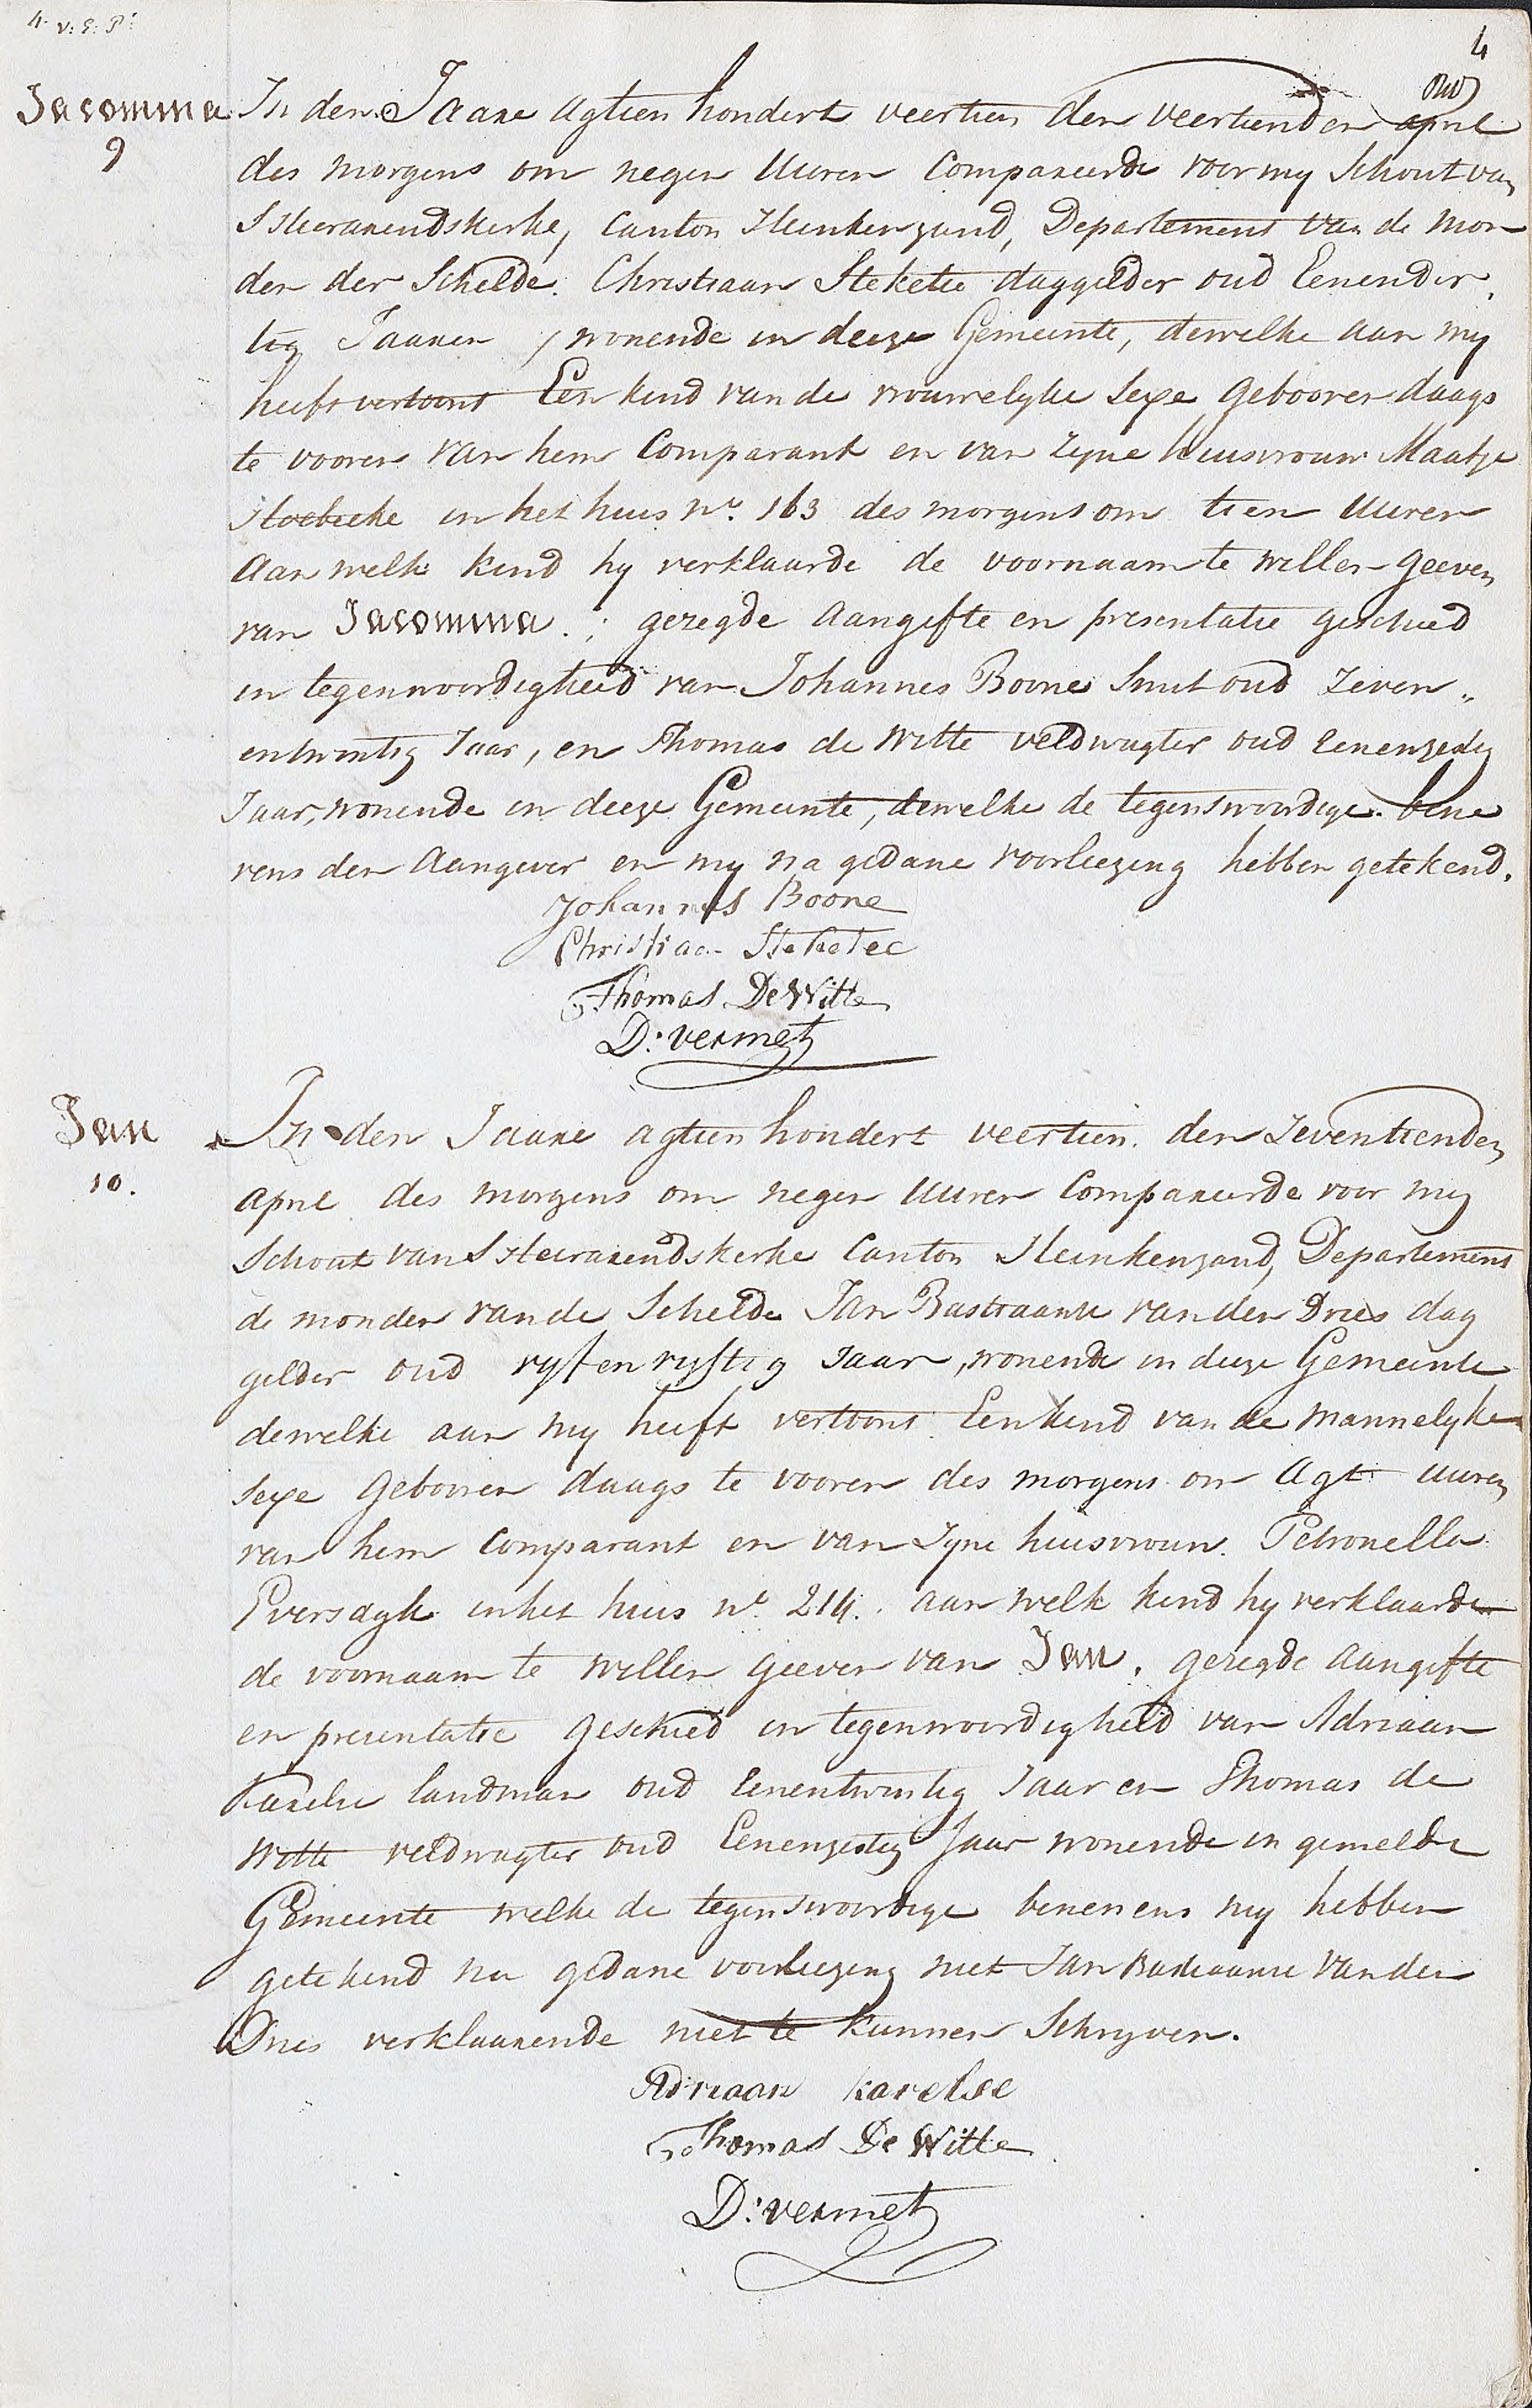 4. v: E: P:
4
Jacomma
9
In den Jaare agtien hondert veertien den veertienden april
des morgens om negen Uuren Compareerde voor my Schout van
SHeerarendskerke, Canton Heinkenzand, Departement van de Mon
den der Schelde. Christiaan Steketee daggelder oud Eenender,
tig Jaaren, wonende in deeze Gemeente, dewelke aan my
heeft vertoont Een kind van de vrouwelyke Sexe gebooren daags
te vooren van hem Comparant en van zyne huisvrouw Maatje
in het huis No. 163 des morgens om tien Uuren
aan welk kind hy verklaarde de voornaam te willen geeven
van Jacomma.; gezegde aangifte en presentatie geschied
in tegenwoordigheid van Johannes Boone Smit oud Zeven,,
entwintig Jaar, en Thomas de Witte veldwagter oud Eenenzestig
Jaar, wonende in deeze Gemeente, dewelke de tegenswoordige bene
vens den aangever en my na gedane voorleezing hebben getekend.
Johannes Boone
Christiaan Steketee
Thomas De Witte
D: vermet
Jan
10.
In den Jaare agtien hondert veertien den Zeventienden
april des morgens om negen Uuren Compareerde voor my
Schout van SHeerarendskerke Canton Heinkenzand, Departement
de monden van de Schelde Jan Bastiaanse van den Dries dag
gelder oud vyf en vyftig Jaar, wonende in deeze Gemeente
dewelke aan my heeft vertoont Een kind van de Mannelyke
Sexe gebooren daags te vooren des morgens om agt uuren
van hem Comparant en van Zyne huisvrouw. Petronella
Eversdyk in het huis No. 214. aan welk kind hy verklaarde
de voornaam te willen geeven van Jan. gezegde aangifte
en presentatie geschied in tegenwoordigheid van Adriaan
Karelse landman oud Eenentwintig Jaar en Thomas de
Witte veldwagter oud Eenenzestig Jaar wonende in gemelde
Gemeente welke de tegenswoordige benevens my hebben
getekend na gedane voorleezing met Jan Bastiaanse van den
Dries verklaarende niet te kunnen Schryven.
Adriaan Karelse
Thomas De Witte
D: vermet